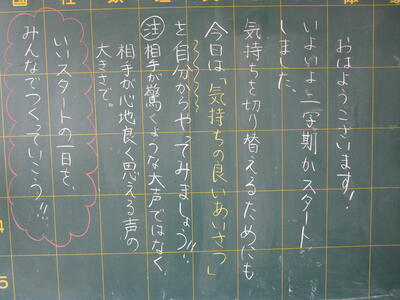 おはようございます!
いよいよ二学期がスタート
しました。
気持ちを切り替えるためにも
今日は「気持ちの良いあいさつ」
を自分からやってみましょう!!
注相手が驚くような大声ではなく、
相手が心地良く思える声の
大きさで。
いいスタートの一日を、
みんなでつくっていこう!!
4
5